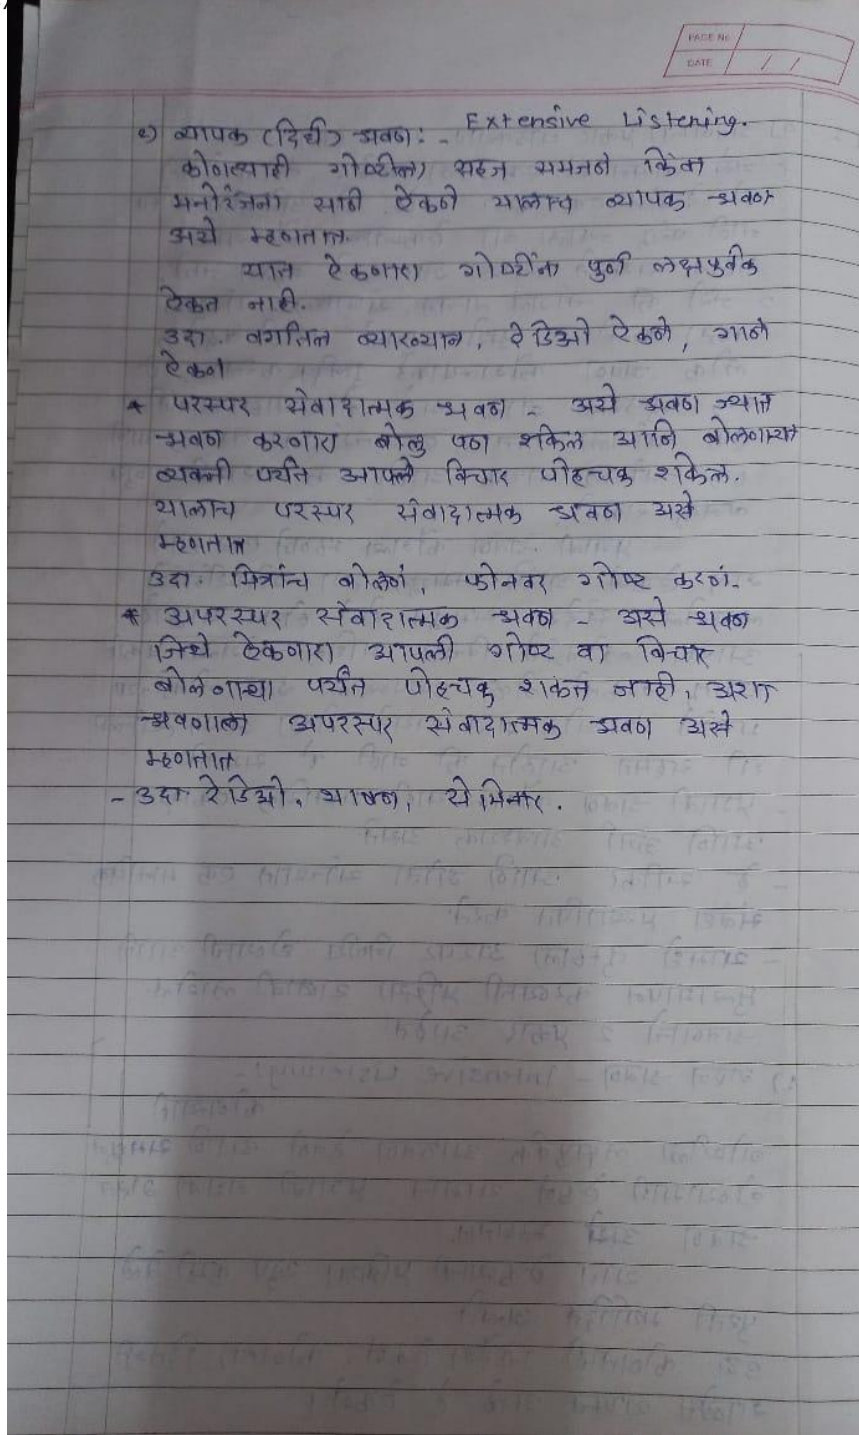 PAGE No.
DATE / /
२) व्यापक (दिर्घ) श्रवण :- Extensive Listening.
कोणत्याही गोष्टीला सहज समजने किंवा
मनोरंजना साठी ऐकने यालाच व्यापक श्रवण
असे म्हणतात.
यात ऐकणारा गोष्टींना पुर्ण लक्षपुर्वक
ऐकत नाही.
उदा. वर्गातिल व्याख्यान, रेडिओ ऐकने, गाने
ऐकने
* परस्पर संवादात्मक श्रवण - असे श्रवण ज्यात
श्रवण करणारा बोलु पण शकिल आनि बोलणाऱ्या
व्यक्ती पर्यंत आपले विचार पोहचवु शकेल.
यालाच परस्पर संवादात्मक श्रवण असे
म्हणतात
उदा. मित्रांच बोलणं, फोनवर गोष्ट करणं.
* अपरस्पर संवादात्मक श्रवण - असे श्रवण
जिथे ऐकणारा आपली गोष्ट वा विचार
बोलणाऱ्या पर्यंत पोहचवु शकत नाही. अशा
श्रवणाला अपरस्पर संवादात्मक श्रवण असे
म्हणतात
- उदा रेडिओ, भाषण, सेमिनार.